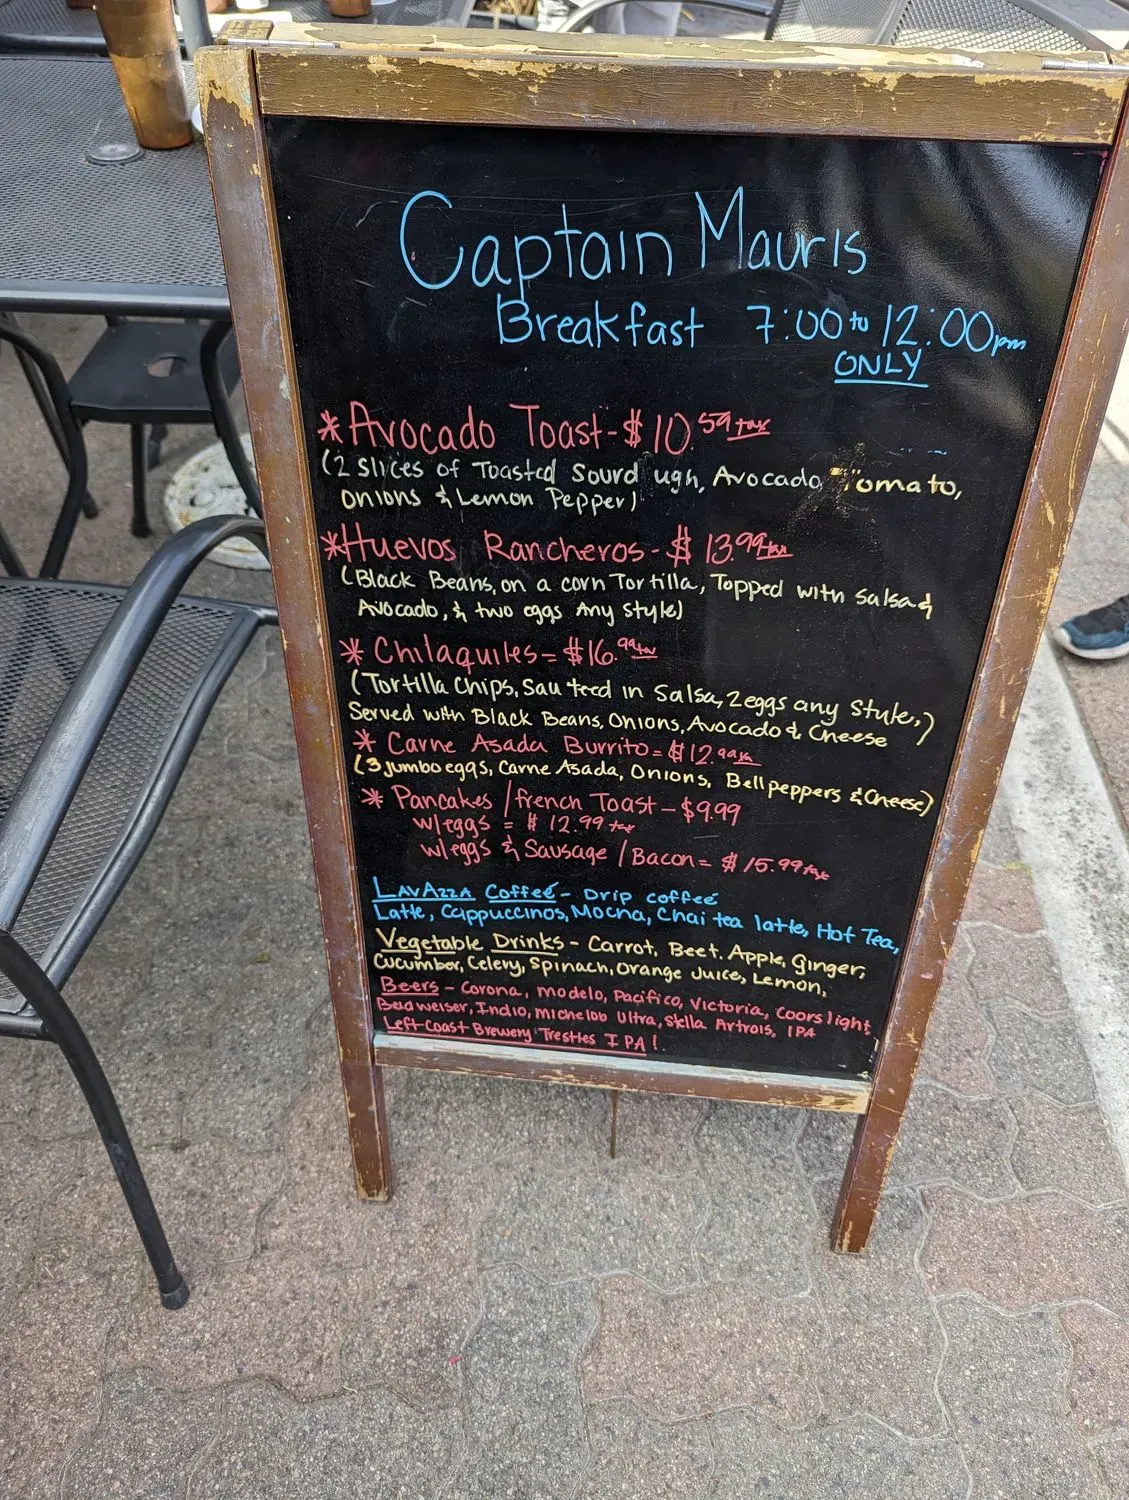 Captain Mauris
Breakfast 7:00 to 12:00pm
ONLY
*Avocado Toast-$10.59+tax
(2 Slices of Toasted Sourd ugh, Avocado, Tomato,
Onions & Lemon Pepper)
*Huevos Rancheros-$13.99+tax
(Black Beans, on a corn Tortilla, Topped with Salsa &
Avocado, & two eggs Any Style)
*Chilaquiles=$16.99+tax
(Tortilla Chips, Sauteed in Salsa, 2 eggs any Style,)
Served with Black Beans, Onions, Avocado & Cheese
*Carne Asada Burrito=$12.99+tax
(3 jumbo eggs, Carne Asada, Onions, Bell peppers & Cheese)
*Pancakes/french Toast-$9.99
w/eggs = $12.99+tax
w/eggs & Sausage/Bacon=$15.99+tax
LAVAZZA Coffee- Drip coffee
Latte, Cappuccinos, Mocha, Chai tea latte, Hot Tea,
Vegetable Drinks- Carrot, Beet, Apple, Ginger,
Cucumber, Celery, Spinach, Orange Juice, Lemon,
Beers- Corona, Modelo, Pacifico, Victoria, Coors light
Budweiser, Indio, Michelob Ultra, Stella Artrois, IPA
Left Coast Brewery Trestles IPA!